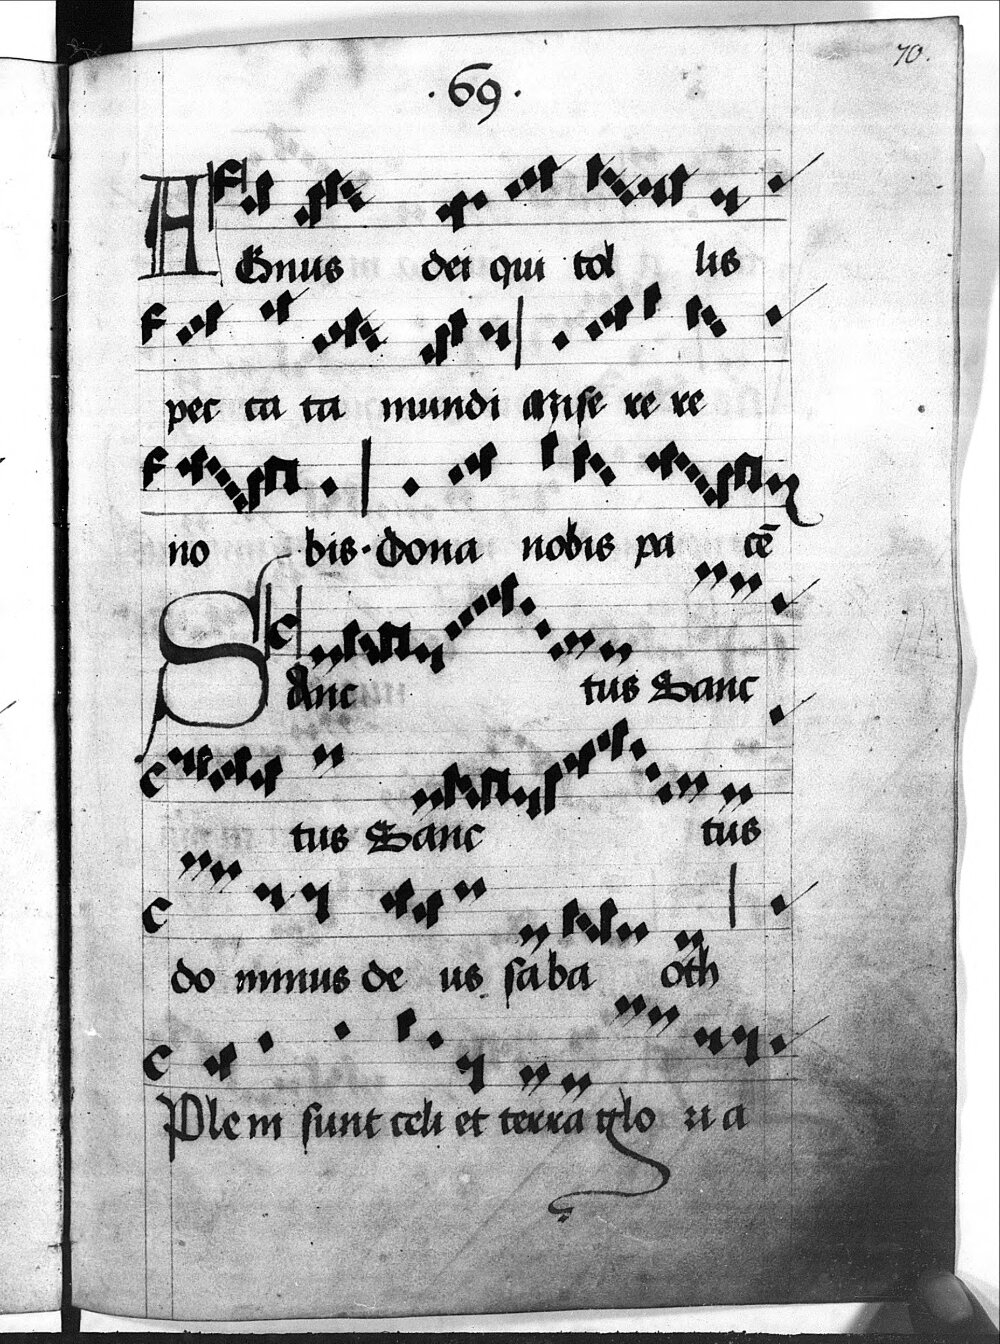 70.
·69·
AGnus dei qui tol lis
pec ca ta mundi Mise re re
no bis · dona nobis pa cē
SAnc tus Sanc
tus Sanc tus
do minus de us saba oth
Ple ni sunt celi et terra glo ri a